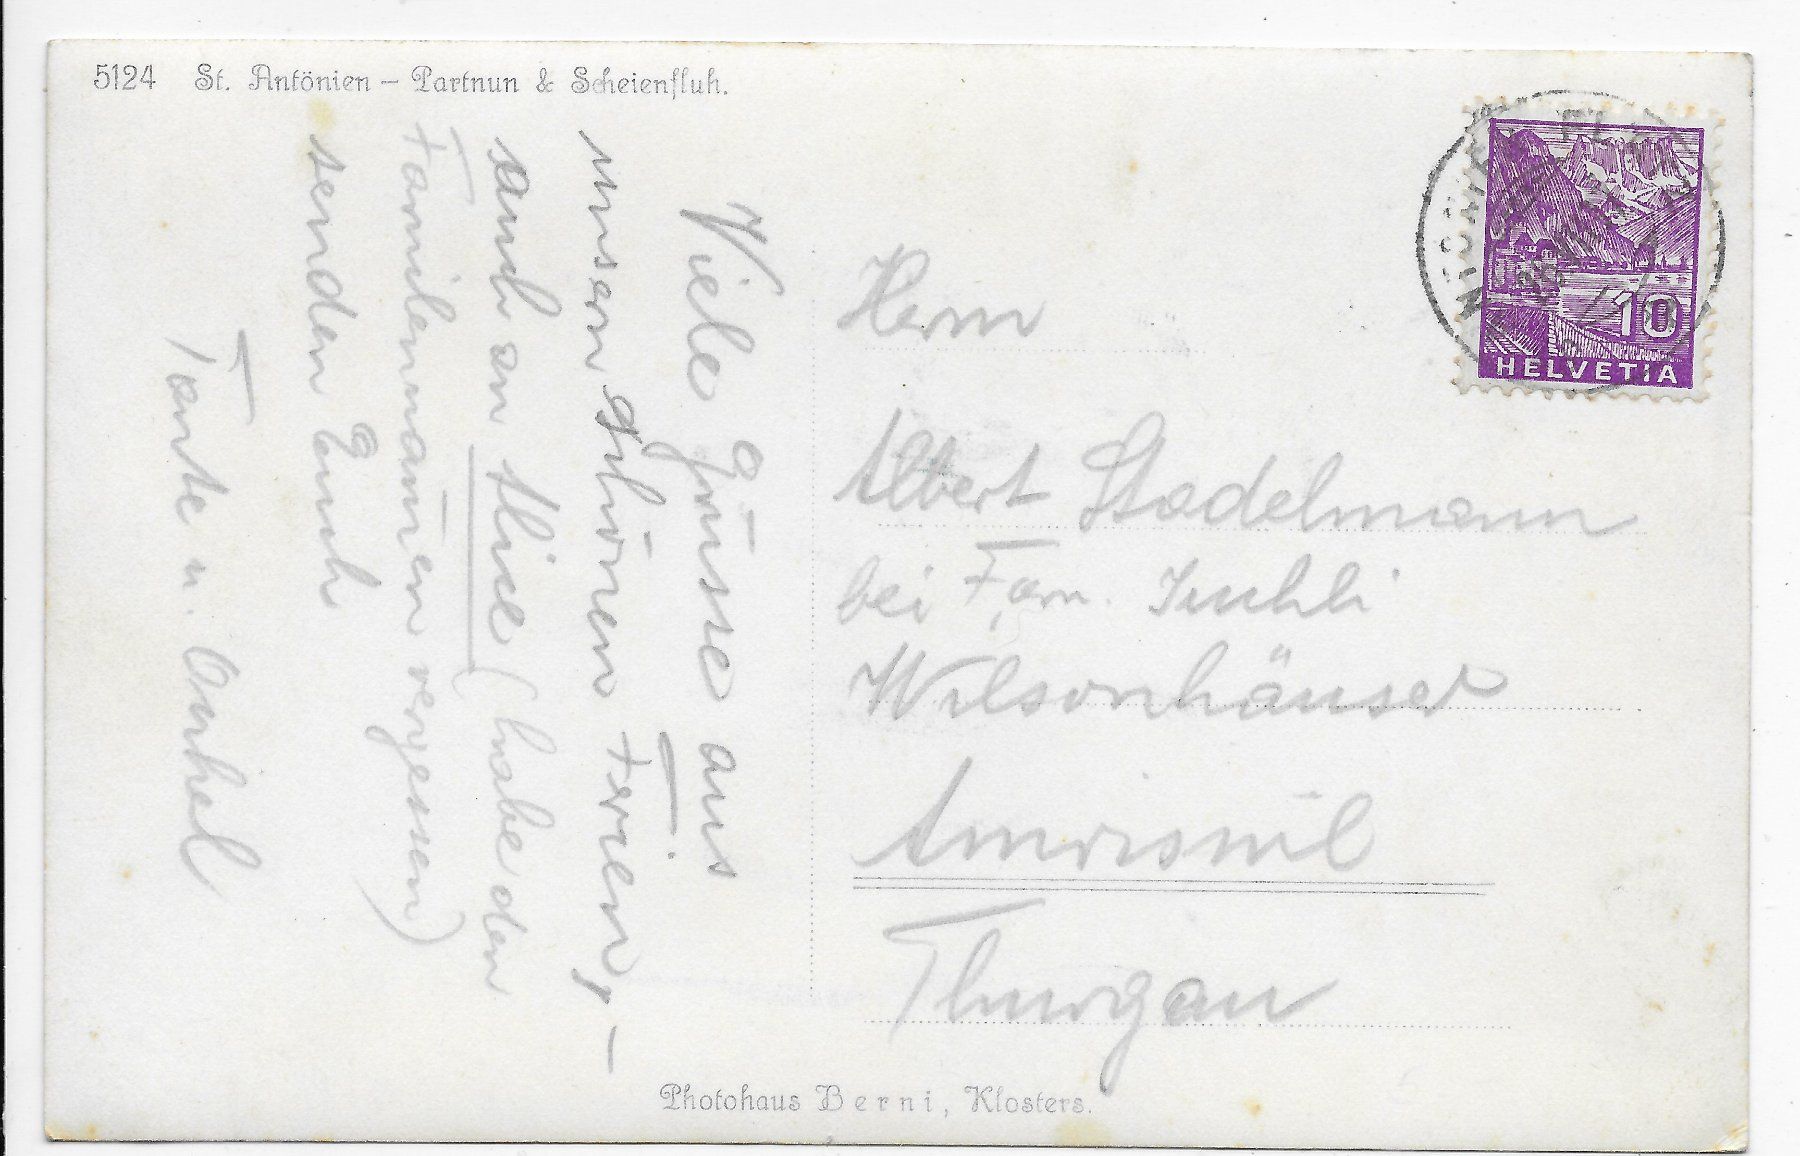 5124 St. Antönien – Partnun & Scheienfluh.
Viele Grüsse aus
unsern schönen Ferien, –
auch an Alice (habe den
Familiennamen vergessen)
senden Euch
Tante u. Onkel
Herrn
Albert Stadelmann
bei Fam.
Wilsonhäuser
Amriswil
Thurgau
10
HELVETIA
Photohaus Berni, Klosters.